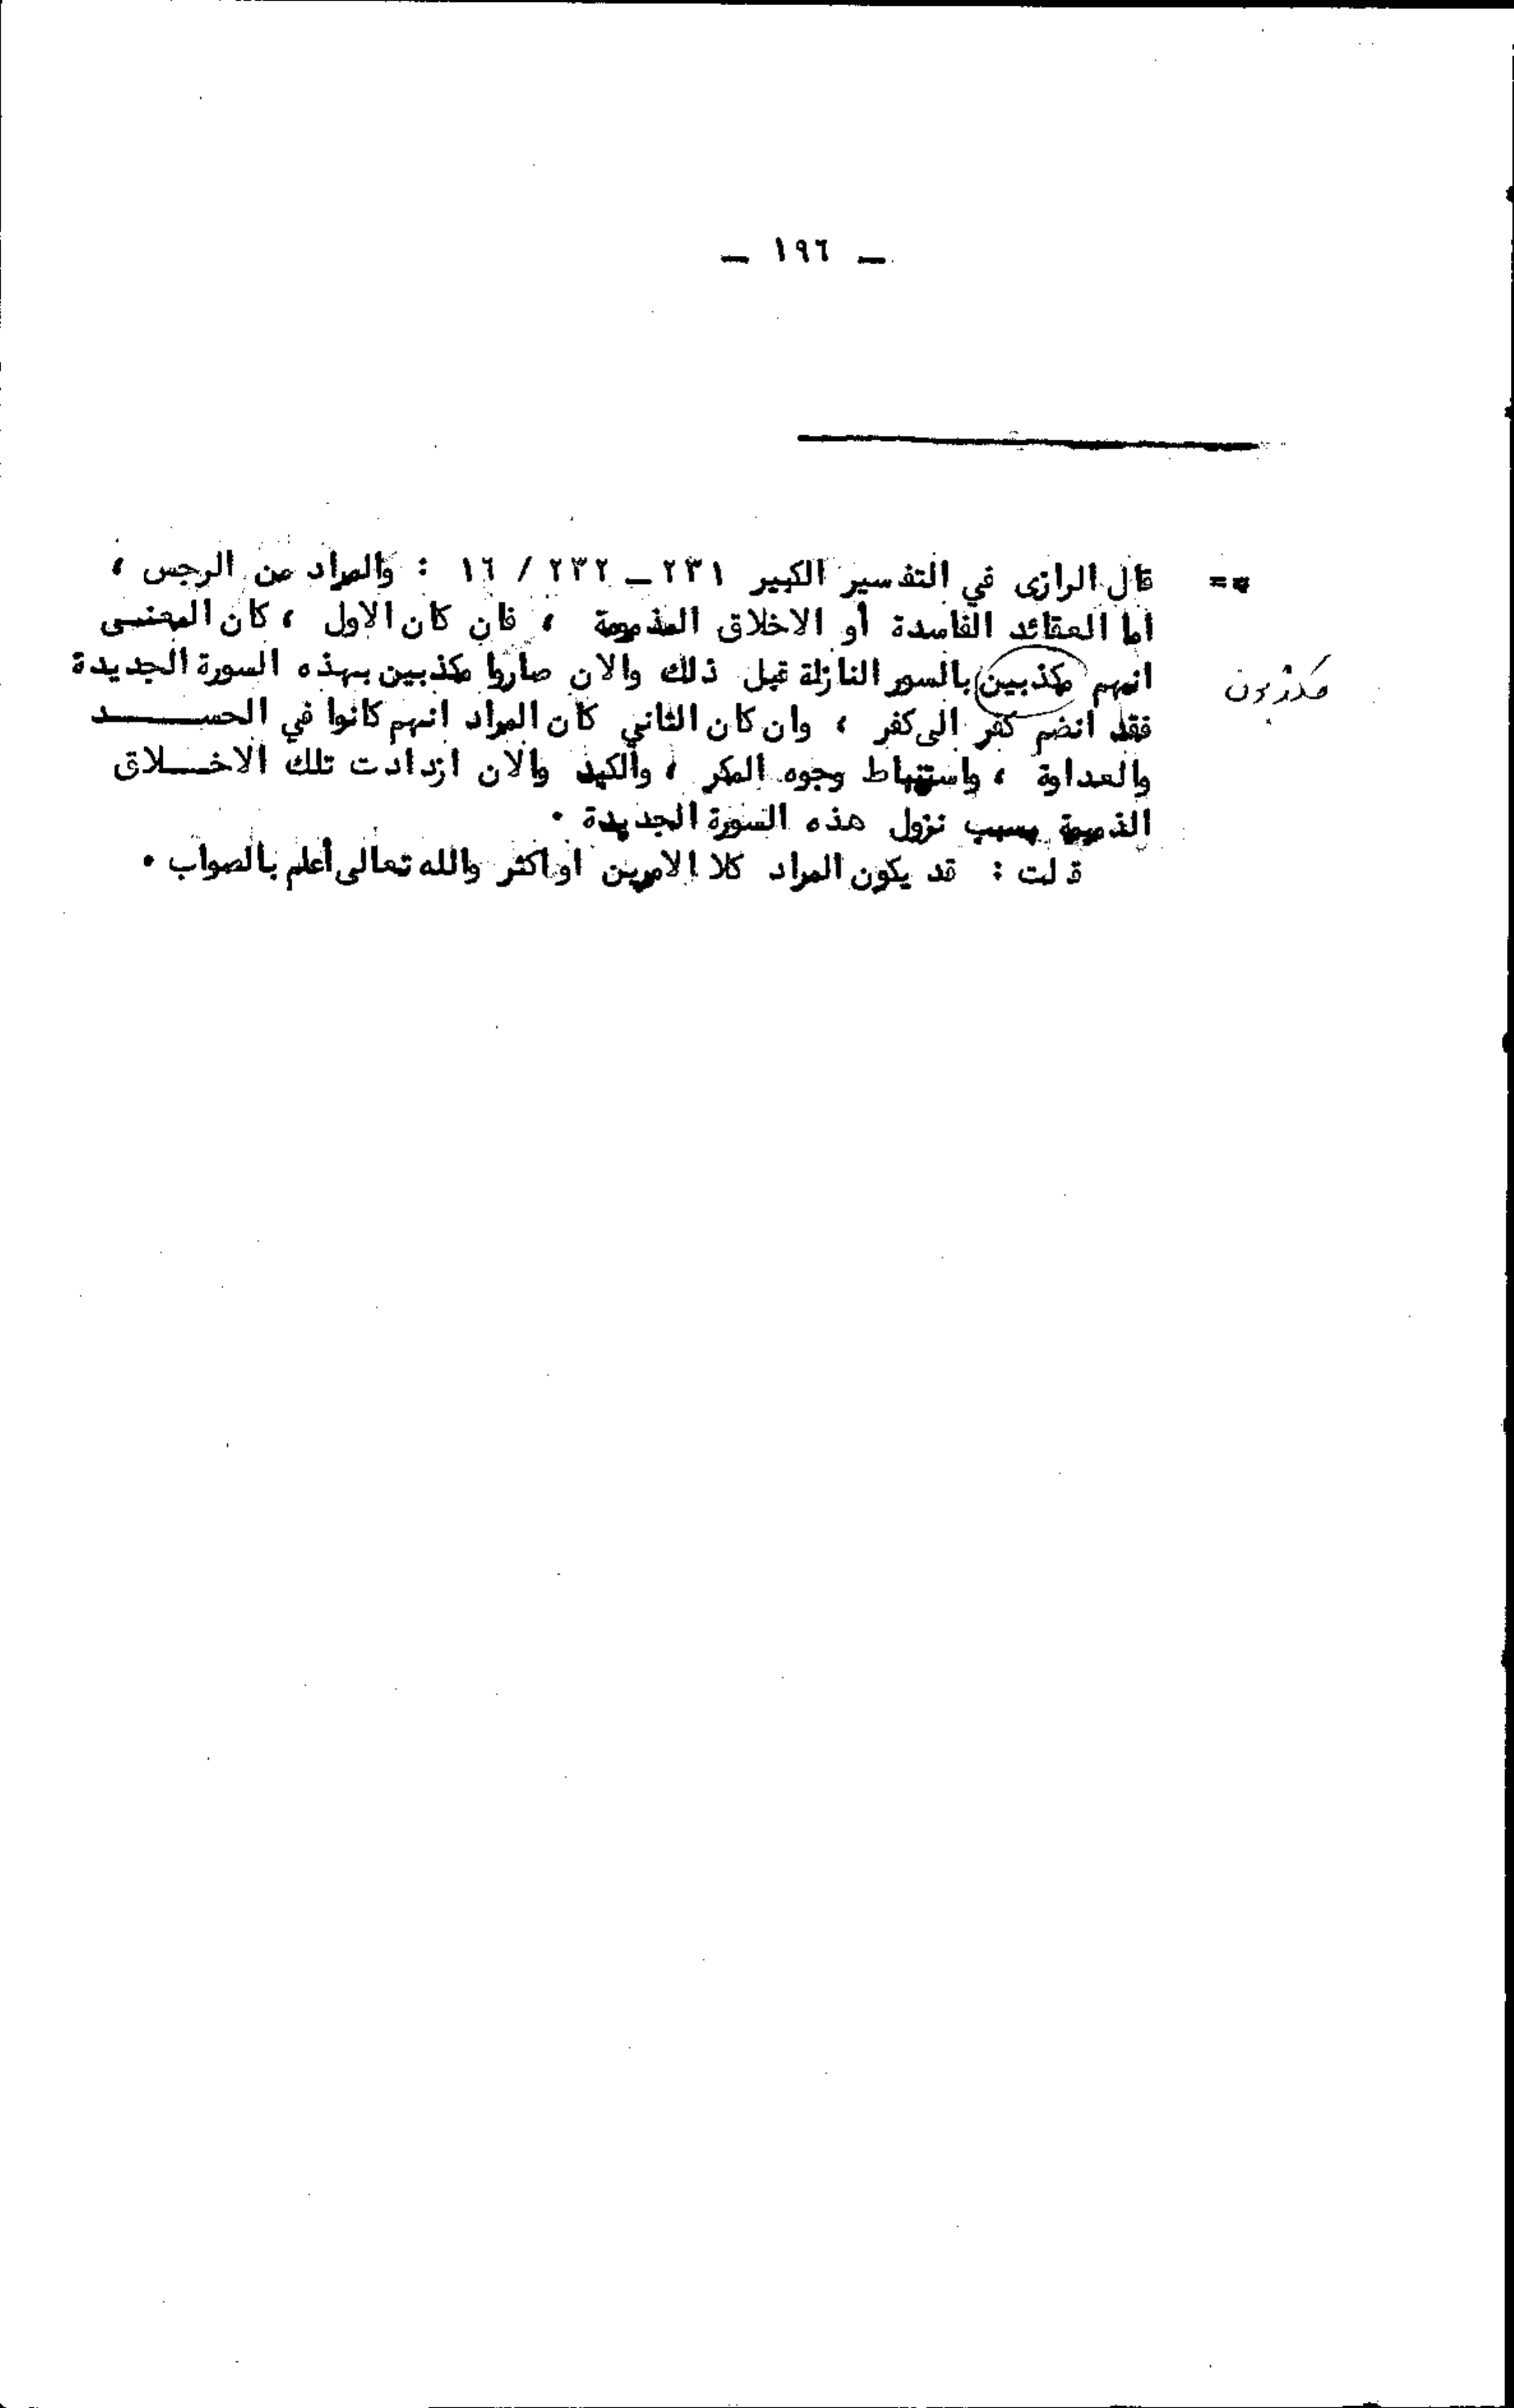 — ١٩٦ —
== قال الرازى في التفسير الكبير ٢٣١ — ٢٣٢ / ١٦ : والمراد من الرجس ،
اما العقائد الفاسدة أو الاخلاق المذمومة ، فان كان الاول ، كان المعنى
انهم مكذبين بالسور النازلة قبل ذلك والان صاروا مكذبين بهذه السورة الجديدة
مكذبون
فقد انضم كفر الى كفر ، وان كان الثاني كان المراد انهم كانوا في الحسد
والعداوة ، واستنباط وجوه المكر ، والكيد والان ازدادت تلك الاخلاق
الذميمة بسبب نزول هذه السورة الجديدة .
قلت : قد يكون المراد كلا الامرين او اكثر والله تعالى أعلم بالصواب .